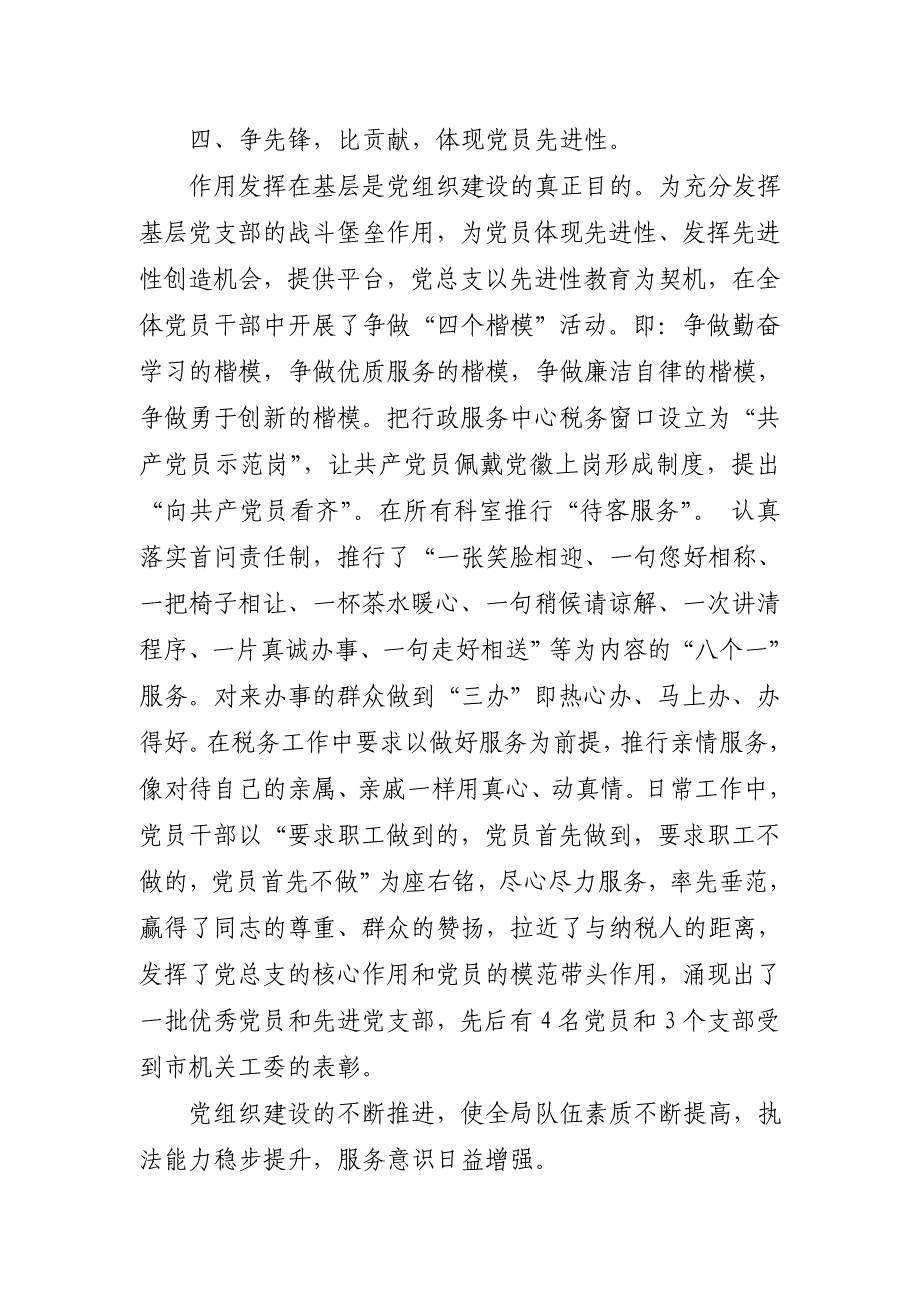 四、争先锋，比贡献，体现党员先进性。
作用发挥在基层是党组织建设的真正目的。为充分发挥
基层党支部的战斗堡垒作用，为党员体现先进性、发挥先进
性创造机会，提供平台，党总支以先进性教育为契机，在全
体党员干部中开展了争做“四个楷模”活动。即：争做勤奋
学习的楷模，争做优质服务的楷模，争做廉洁自律的楷模，
争做勇于创新的楷模。把行政服务中心税务窗口设立为“共
产党员示范岗”，让共产党员佩戴党徽上岗形成制度，提出
“向共产党员看齐”。在所有科室推行“待客服务”。 认真
落实首问责任制，推行了“一张笑脸相迎、一句您好相称、
一把椅子相让、一杯茶水暖心、一句稍候请谅解、一次讲清
程序、一片真诚办事、一句走好相送”等为内容的“八个一”
服务。对来办事的群众做到“三办”即热心办、马上办、办
得好。在税务工作中要求以做好服务为前提，推行亲情服务，
像对待自己的亲属、亲戚一样用真心、动真情。日常工作中，
党员干部以“要求职工做到的，党员首先做到，要求职工不
做的，党员首先不做”为座右铭，尽心尽力服务，率先垂范，
赢得了同志的尊重、群众的赞扬，拉近了与纳税人的距离，
发挥了党总支的核心作用和党员的模范带头作用，涌现出了
一批优秀党员和先进党支部，先后有 4 名党员和 3 个支部受
到市机关工委的表彰。
党组织建设的不断推进，使全局队伍素质不断提高，执
法能力稳步提升，服务意识日益增强。